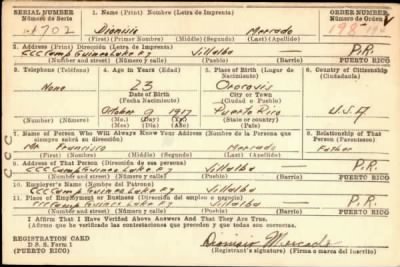 SERIAL NUMBER 1. NAME (Print) Nombre (Letra de Imprenta) ORDER NUMBER
Número de Serie Número de Orden
702 Dionisio Mercado 198
(First) (Primer Nombre) (Middle) (Segundo) (Last) (Apellido)
2. Address (Print) Dirección (Letra de Imprenta)
Villalba P.R.
(Number and street) (Número y calle) (Town) (Pueblo) PUERTO RICO
3. Telephone (Teléfono) 4. Age in Years (Edad) 5. Place of Birth (Lugar de Nacimiento) 6. Country of Citizenship (Ciudadanía)
None 23 Orocovis
Date of Birth City or Town
(Fecha Nacimiento) (Ciudad o Pueblo)
October 9 1917 Puerto Rico U.S.A
(Mo.) (Day) (Yr.) (State or country)
(Número) (Mes) (Día) (Año) (País)
7. Name of Person Who Will Always Know Your Address (Nombre de la Persona que siempre sabrá su dirección) 8. Relationship of That Person (Parentesco)
Mr. Francisco Mercado Father
(First) (Nombre) (Middle) (Segundo) (Last) (Apellido)
9. Address of That Person (Dirección de esa persona)
Villalba P.R.
(Number and street) (Número y calle) (Town) (Pueblo) PUERTO RICO
10. Employer's Name (Nombre del Patrono)
Villalba
11. Place of Employment or Business (Dirección del empleo o negocio)
Villalba P.R.
(Number and street) (Número y calle) (Town) (Pueblo) PUERTO RICO
I Affirm That I Have Verified Above Answers And That They Are True.
(Afirmo que he verificado las contestaciones que preceden y que todas son ciertas.
REGISTRATION CARD Dionisio Mercado
D. S. S. Form 1 (Registrant's signature) (Firma o marca del inscrito)
C C C